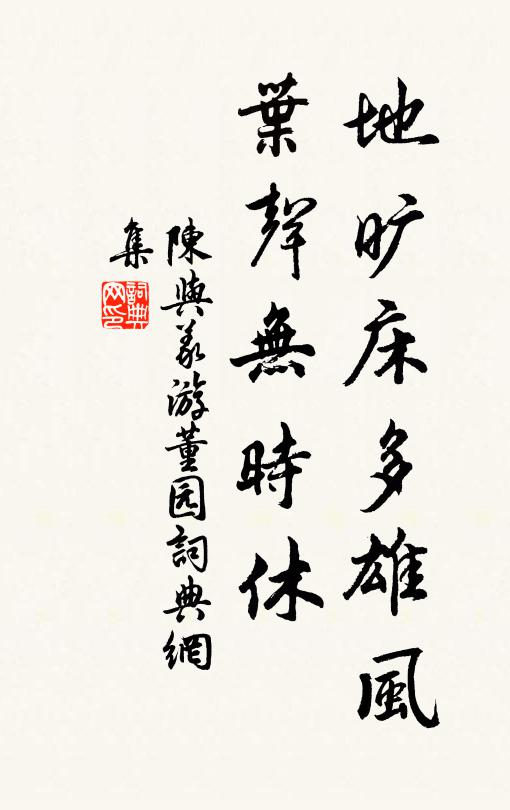 地旷床多雄風
葉聲無時休
陳與義游董园詞典網
集
詞典
网印